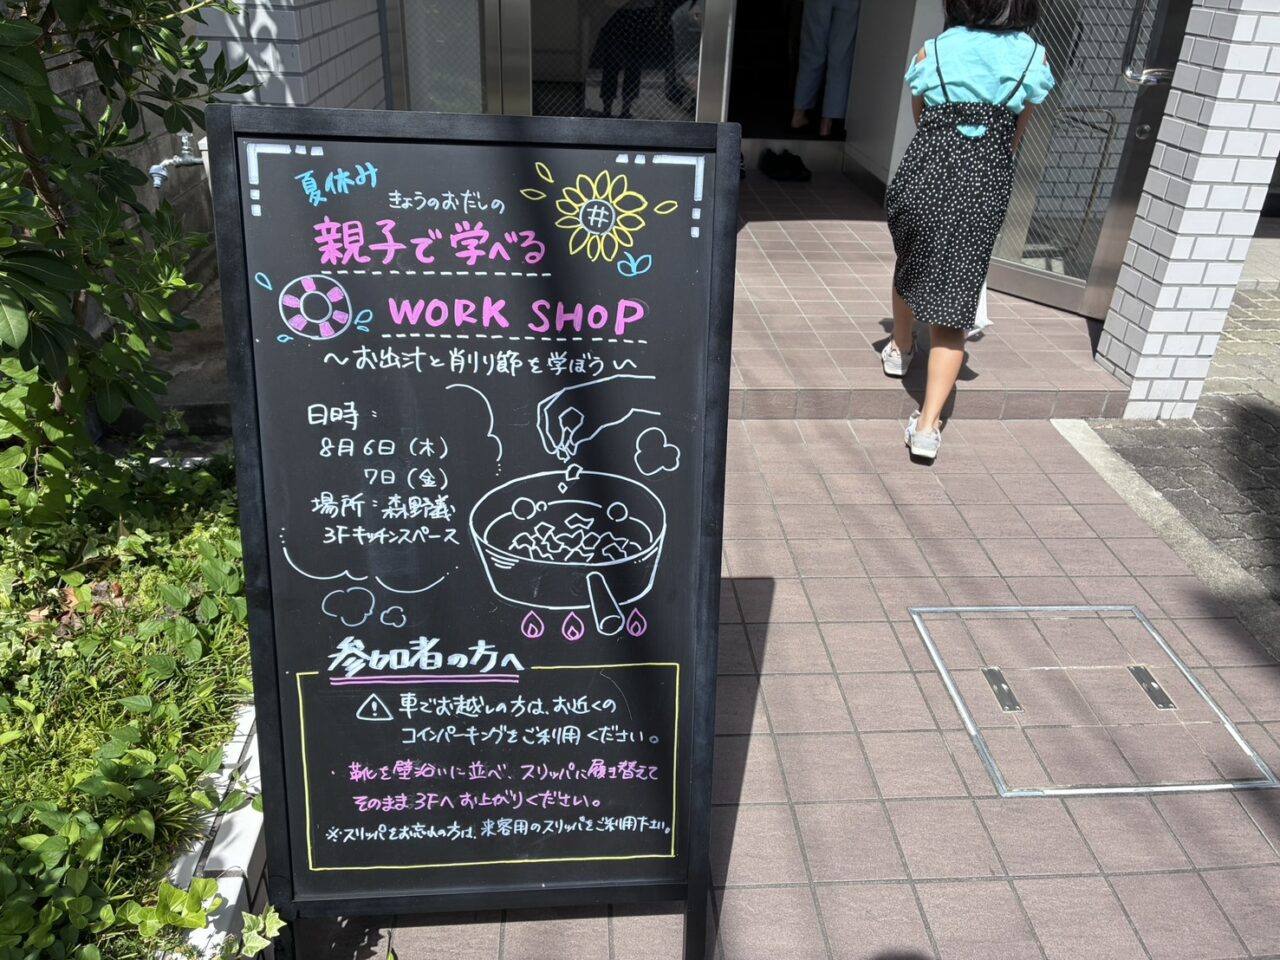 夏休み
きょうのおだしの
#
親子で学べる
WORK SHOP
～お出汁と削り節を学ぼう～
日時：
8月6日（木）
7日（金）
場所：森野義
3Fキッチンスペース
参加者の方へ
車でお越しの方は、お近くの
コインパーキングをご利用ください。
・靴を壁沿いに並べ、スリッパに履き替えて
そのまま3Fへお上がりください。
※スリッパをお忘れの方は、来客用のスリッパをご利用下さい。